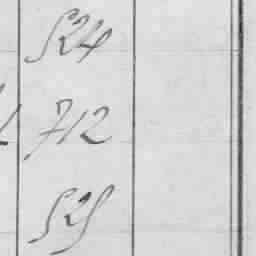 524
712
525